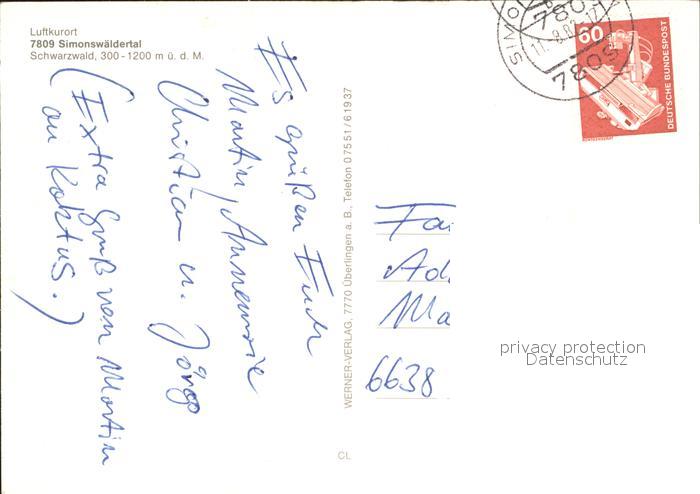 Luftkurort
7809 Simonswäldertal
Schwarzwald, 300-1200 m ü. d. M.
Es grüßen Euch
Martin, Annemarie
Christian u. Jörg
(Extra Gruß von Martin
an Kaktus.)
WERNER-VERLAG, 7770 Überlingen a. B., Telefon 0 75 51 / 6 19 37
CL
60
DEUTSCHE BUNDESPOST
7809
Fa
Ad
Ma
6638
privacy protection
Datenschutz